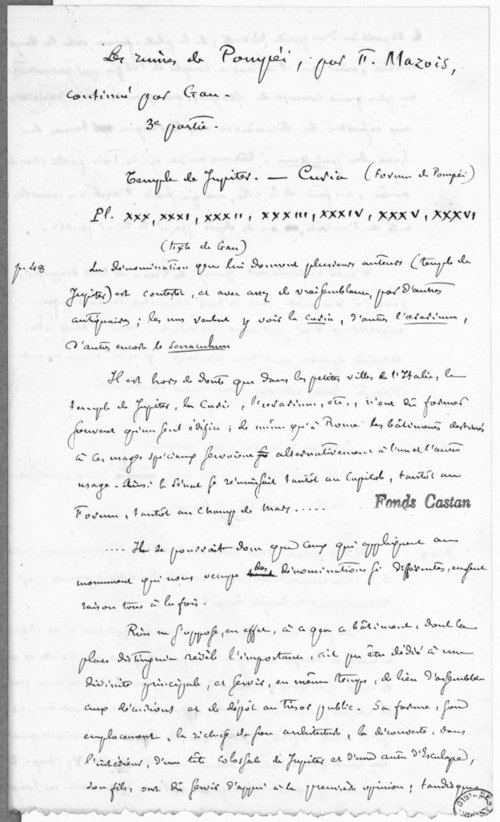 Les ruines de Pompéi, par F. Mazois,
continué par Gau.
3e partie.
Temple de Jupiter. — Curia (Forum de Pompéi)
Pl. XXX, XXXI, XXXII, XXXIII, XXXIV, XXXV, XXXVI
(texte de Gau)
p. 48 La dénomination que lui donnent plusieurs auteurs (temple de
Jupiter) est contestée, et avec assez de vraisemblance, par d'autres
antiquaires ; les uns veulent y voir la curia, d'autres l'aerarium,
d'autres encore le senaculum
Il est hors de doute que dans les petites villes de l'Italie, le
temple de Jupiter, la Curie, l'aerarium, etc., n'ont dû former
souvent qu'un seul édifice ; de même qu'à Rome les bâtiments destinés
à ces usages spéciaux servaient alternativement à l'un et l'autre
usage. Ainsi le Sénat se réunissait tantôt au Capitole, tantôt au
Forum, tantôt au Champ de Mars.....
Fonds Castan
.... Il se pourrait donc que ceux qui appliquent au
monument qui nous occupe des dénominations si différentes, eussent
raison tous à la fois.
Rien ne s'oppose, en effet, à ce que ce bâtiment, dont la
place distinguée révèle l'importance, ait pu être dédié à une
divinité principale, et servir, en même temps, de lieu d'assemblée
aux décurions et de dépôt au trésor public. Sa forme, son
emplacement, la richesse de son architecture, la découverte, dans
l'intérieur, d'une tête colossale de Jupiter et d'une autre d'Esculape,
son fils, ont dû servir d'appui à la première opinion ; tandis que